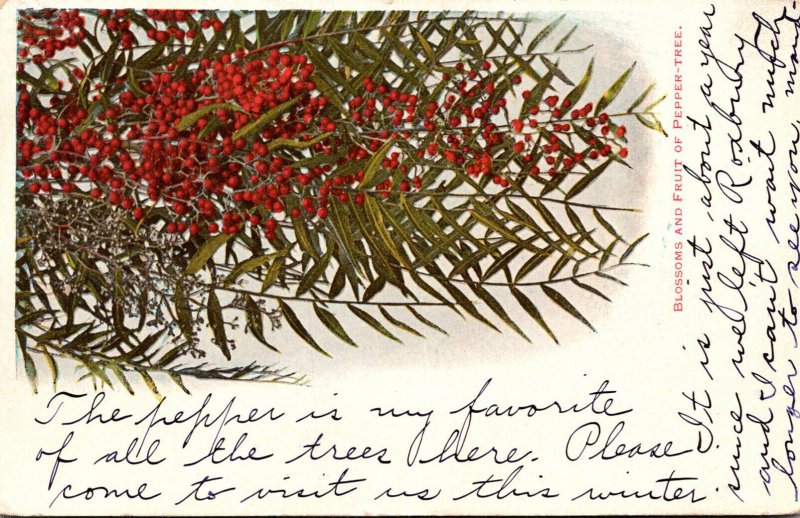 BLOSSOMS AND FRUIT OF PEPPER-TREE.
The pepper is my favorite
of all the trees here. Please
come to visit us this winter.
It is just about a year
since we left Roxbury
and I can't wait much
longer to see you,